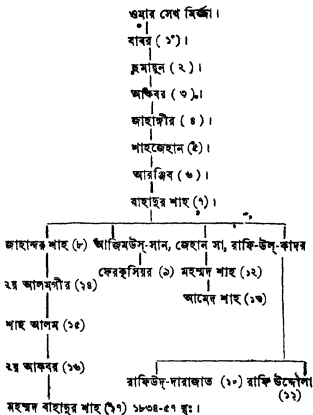 ওমার সেখ মির্জ্জা।
বাবর (১)।
হুমায়ুন (২)।
আকবর (৩)।
জাহাঙ্গীর (৪)।
শাহজেহান (৫)।
আরঞ্জিব (৬)।
বাহাদুর শাহ (৭)।
জাহান্দর শাহ (৮) আজিমউস্-সান, জেহান সা, রাফি-উল্-কাদর
ফেরকৃসিয়র (৯) মহম্মদ শাহ (১২)
২য় আলমগীর (১৪)
আমেদ শাহ (১৩)
শাহ আলম (১৫)
২য় আকবর (১৬)
রাফিউদ্-দারাজাত (১০) রাফি উদ্দৌলা
(১১)
মহম্মদ বাহাদুর শাহ (১৭) ১৮৩৪-৫৭ খৃঃ।